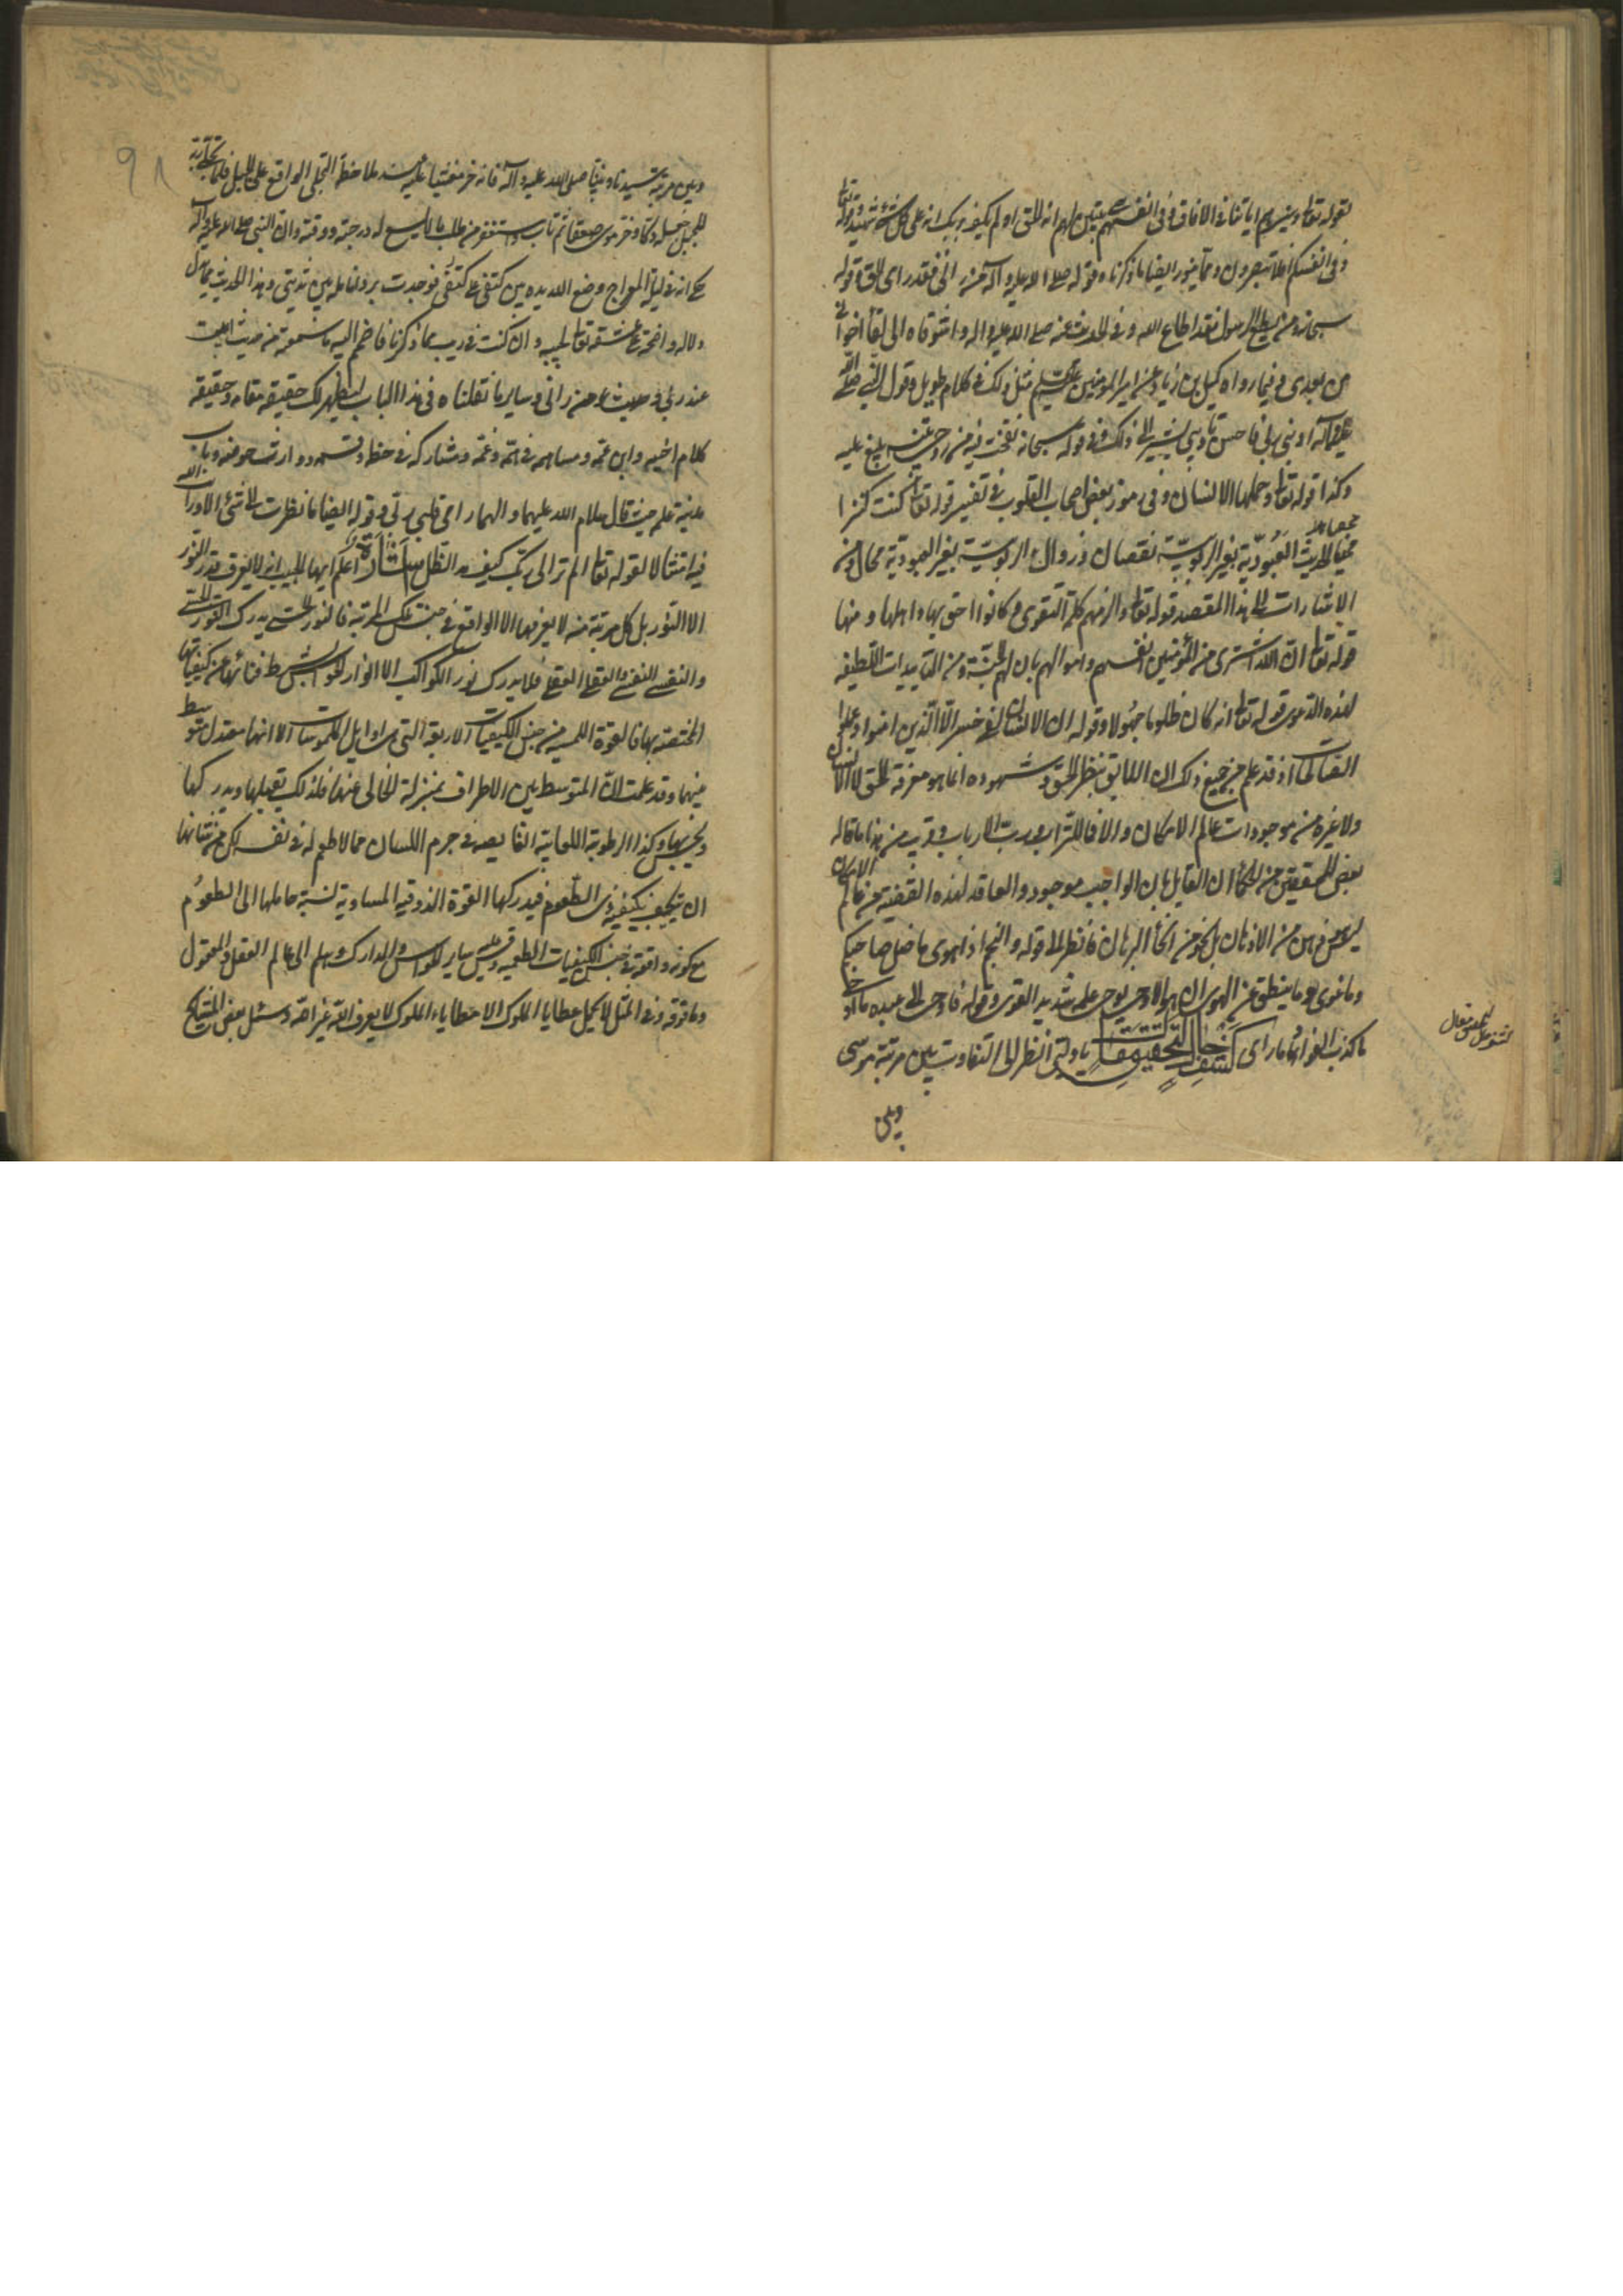 لقوله تعالى سنريهم اياتنا فى الافاق وفى انفسهم حتى يتبين لهم انه الحق اولم يكف بربك انه على كل شئ شهيد وقوله تعالى
وفى انفسكم افلا تبصرون ومما ينور ايضا ما ذكرناه قوله صلى الله عليه وآله من رآنى فقد راى الحق وقوله
سبحانه من يطع الرسول فقد اطاع الله وفى الحديث عنه صلى الله عليه واله واشوقاه الى لقاء اخوانى
من بعدى وفيما رواه كميل بن زياد عن امير المومنين عليه السلم مثل ذلك فى كلام طويل وقول النبى صلى الله
عليه وآله ادبنى ربى فاحسن تاديبى يشير الى ذلك وفى قوله سبحانه نفخت فيه من روحى تنبيه بليغ عليه
وكذا قوله تعالى وحملها الانسان وفى رموز بعض اصحاب القلوب فى تفسير قوله تعالى كنت كنزا
مخفيا الحديث العبودية بغير الربوبية نقصان وزوال والربوبية بغير العبودية محال ومن
الاشارات الى هذا المقصد قوله تعالى والزمهم كلمة التقوى وكانوا احق بها واهلها ومنها
قوله تعالى ان الله اشترى من المؤمنين انفسهم واموالهم بان لهم الجنة ومن التاييدات اللطيفه
لهذه الدعوى قوله تعالى انه كان ظلوما جهولا وقوله ان الانسان لفى خسر الا الذين امنوا وعملوا
الصالحات اذ قد علم من جميع ذلك ان اللايق بنظر الحق وشهوده انما هو معرفة الحق لا الانسان
ولا غيره من موجودات عالم الامكان والا فما للتراب ورب الارباب وقريب من هذا ما قاله
بعض المحققين من الحكماء ان القايل بان الواجب موجود والعاقد لهذه القضية من عالم الامكان
ليس ذهن من الاذهان بل نحو من انحاء البرهان فانظر الى قوله والنجم اذا هوى ما ضل صاحبكم
وما غوى وما ينطق عن الهوى ان هو الا وحى يوحى علمه شديد القوى وقوله فاوحى الى عبده ما اوحى
ما كذب الفؤاد ما راى كشف حال لتحقيق مقال يا وليى انظر الى التفاوت بين مرتبة موسى
وبين
كشف حال لتحقيق مقال
وبين مرتبة سيدنا ونبينا صلى الله عليه وآله فانه خر مغشيا عليه عند ملاحظة التجلى الواقع على الجبل فلما تجلى ربه
للجبل جعله دكا وخر موسى صعقا ثم تاب واستغفر من طلب ما لا يسع له درجته ووقته وان النبى صلى الله عليه وآله
حكى انه فى ليلة المعراج وضع الله يده بين كتفى على كتفى فوجدت برد انامله بين ثديتى وهذا الحديث مما يدل
دلالة واضحة على عشقه تعالى لحبيبه وان كنت فى ريب مما ذكرنا فاضمم اليه ما سمعته من حديث ابيت
عند ربى وحديث من رانى وساير ما نقلناه فى هذا الباب ليظهر لك حقيقة مقامه وحقيقة
كلام اخيه وابن عمه ومساهمه فى همه وغمه ومشاركه فى حظه وقسمه ووارث حوضه وباب
مدينة علمه حيث قال سلام الله عليهما والهما راى قلبى ربى وقوله ايضا ما نظرت الى شئ الا ورايت الله
فيه امتثالا لقوله تعالى الم تر الى ربك كيف مد الظل اشارة اعلم ايها الحبيب انه لا يعرف قدر النور
الا النور بل كل مرتبة منه لا يعرفها الا الواقع فى جنب تلك المرتبة فالنور الحسى يدرك النور الحسى
والنفسى النفسى والعقلى العقلى فلا يدرك نور الكواكب الا انوار الحواس بشرط فنائها عن كيفياتها
المختصة بها فالقوة اللمسية من جنس الكيفيات الاربعة التى هى اوايل الملموسات الا انها معتدل متوسط
فيها وقد علمت ان المتوسط بين الاطراف بمنزلة الخالى عنها فلذلك يقبلها ويدركها
ويحس بها وكذا الرطوبة اللعابية الفايضه فى جرم اللسان مما لا طعم له فى نفسه لكن من شانها
ان يتكيف بكيفية ذى الطعوم فيدركها القوة الذوقية المساوية نسبة حاملها الى الطعوم
مع كونه واقعة فى جنس الكيفيات الطعميه وقس عليه ساير الحواس والمدارك وهلم الى عالم العقل والمعقول
وما فوقه وفى المثل لا يحمل عطايا الملوك الا مطايا الملوك لا يعرف الله غير الله وسئل بعض المشايخ